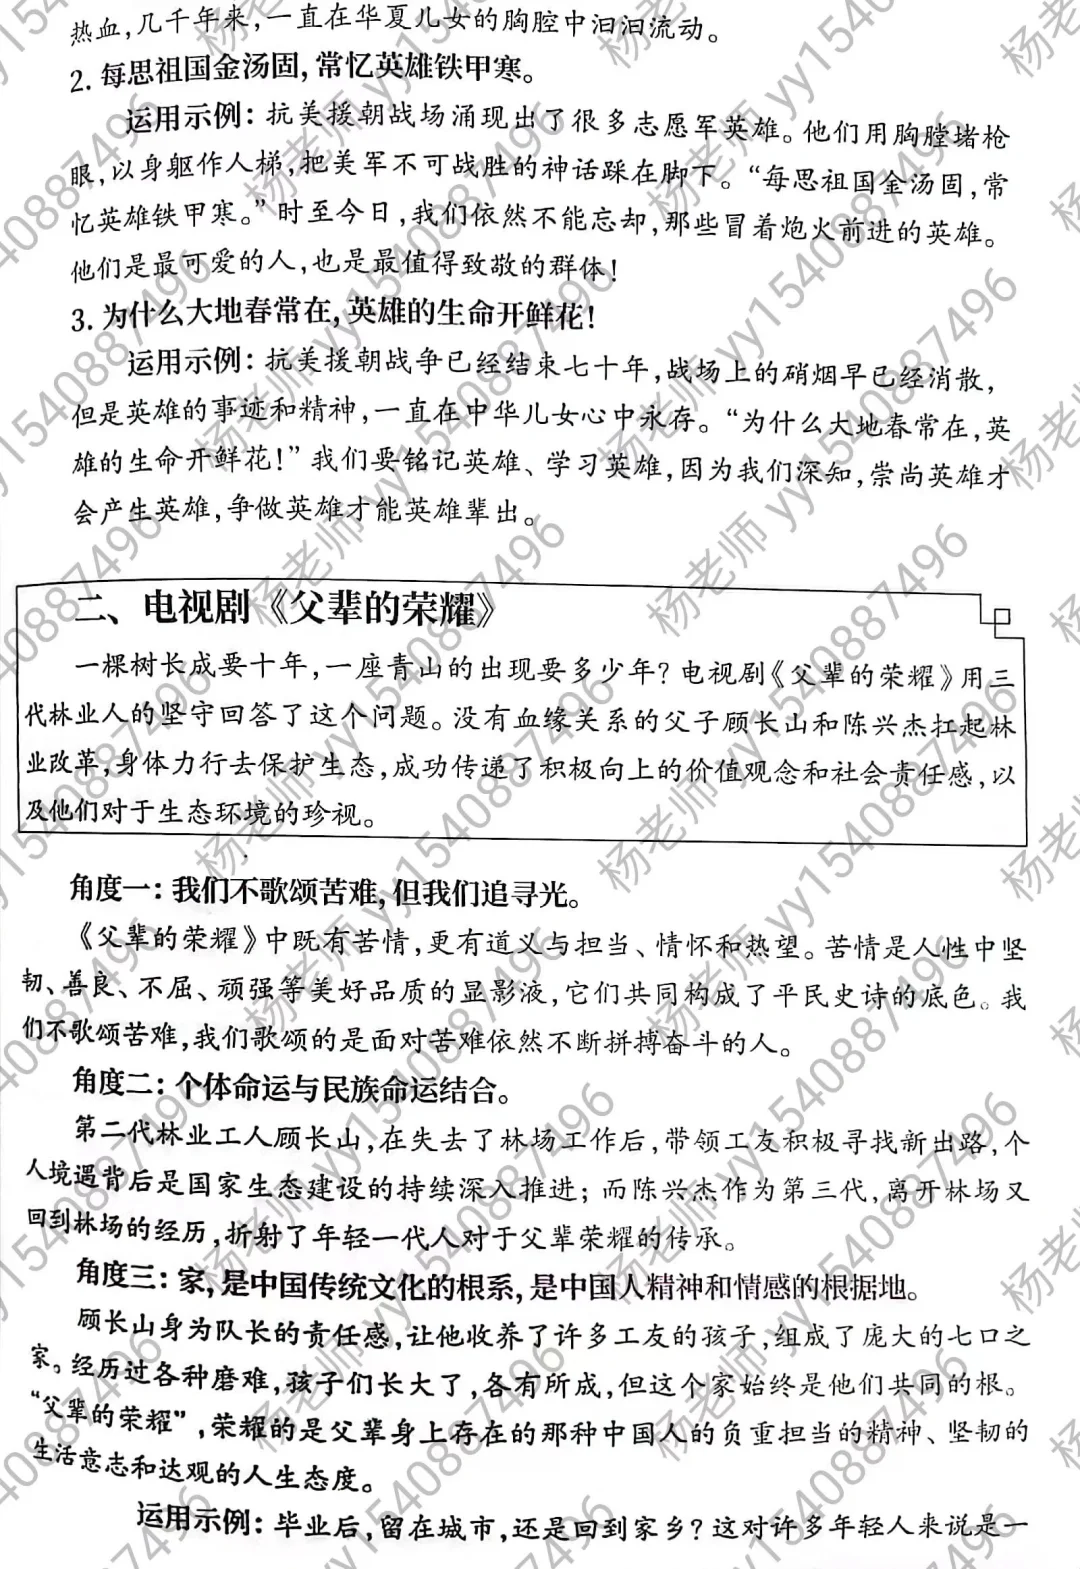 热血,几千年来,一直在华夏儿女的胸腔中汩汩流动。
2. 每思祖国金汤固,常忆英雄铁甲寒。
运用示例:抗美援朝战场涌现出了很多志愿军英雄。他们用胸膛堵枪
眼,以身躯作人梯,把美军不可战胜的神话踩在脚下。“每思祖国金汤固,常
忆英雄铁甲寒。”时至今日,我们依然不能忘却,那些冒着炮火前进的英雄。
他们是最可爱的人,也是最值得致敬的群体!
3. 为什么大地春常在,英雄的生命开鲜花!
运用示例:抗美援朝战争已经结束七十年,战场上的硝烟早已经消散,
但是英雄的事迹和精神,一直在中华儿女心中永存。“为什么大地春常在,英
雄的生命开鲜花!”我们要铭记英雄、学习英雄,因为我们深知,崇尚英雄才
会产生英雄,争做英雄才能英雄辈出。
二、电视剧《父辈的荣耀》
一棵树长成要十年,一座青山的出现要多少年?电视剧《父辈的荣耀》用三
代林业人的坚守回答了这个问题。没有血缘关系的父子顾长山和陈兴杰扛起林
业改革,身体力行去保护生态,成功传递了积极向上的价值观念和社会责任感,以
及他们对于生态环境的珍视。
角度一:我们不歌颂苦难,但我们追寻光。
《父辈的荣耀》中既有苦情,更有道义与担当、情怀和热望。苦情是人性中坚
韧、善良、不屈、顽强等美好品质的显影液,它们共同构成了平民史诗的底色。我
们不歌颂苦难,我们歌颂的是面对苦难依然不断拼搏奋斗的人。
角度二:个体命运与民族命运结合。
第二代林业工人顾长山,在失去了林场工作后,带领工友积极寻找新出路,个
人境遇背后是国家生态建设的持续深入推进;而陈兴杰作为第三代,离开林场又
回到林场的经历,折射了年轻一代人对于父辈荣耀的传承。
角度三:家,是中国传统文化的根系,是中国人精神和情感的根据地。
顾长山身为队长的责任感,让他收养了许多工友的孩子,组成了庞大的七口之
家。经历过各种磨难,孩子们长大了,各有所成,但这个家始终是他们共同的根。
“父辈的荣耀”,荣耀的是父辈身上存在的那种中国人的负重担当的精神、坚韧的
生活意志和达观的人生态度。
运用示例:毕业后,留在城市,还是回到家乡?这对许多年轻人来说是一
杨老师 yy1540887496